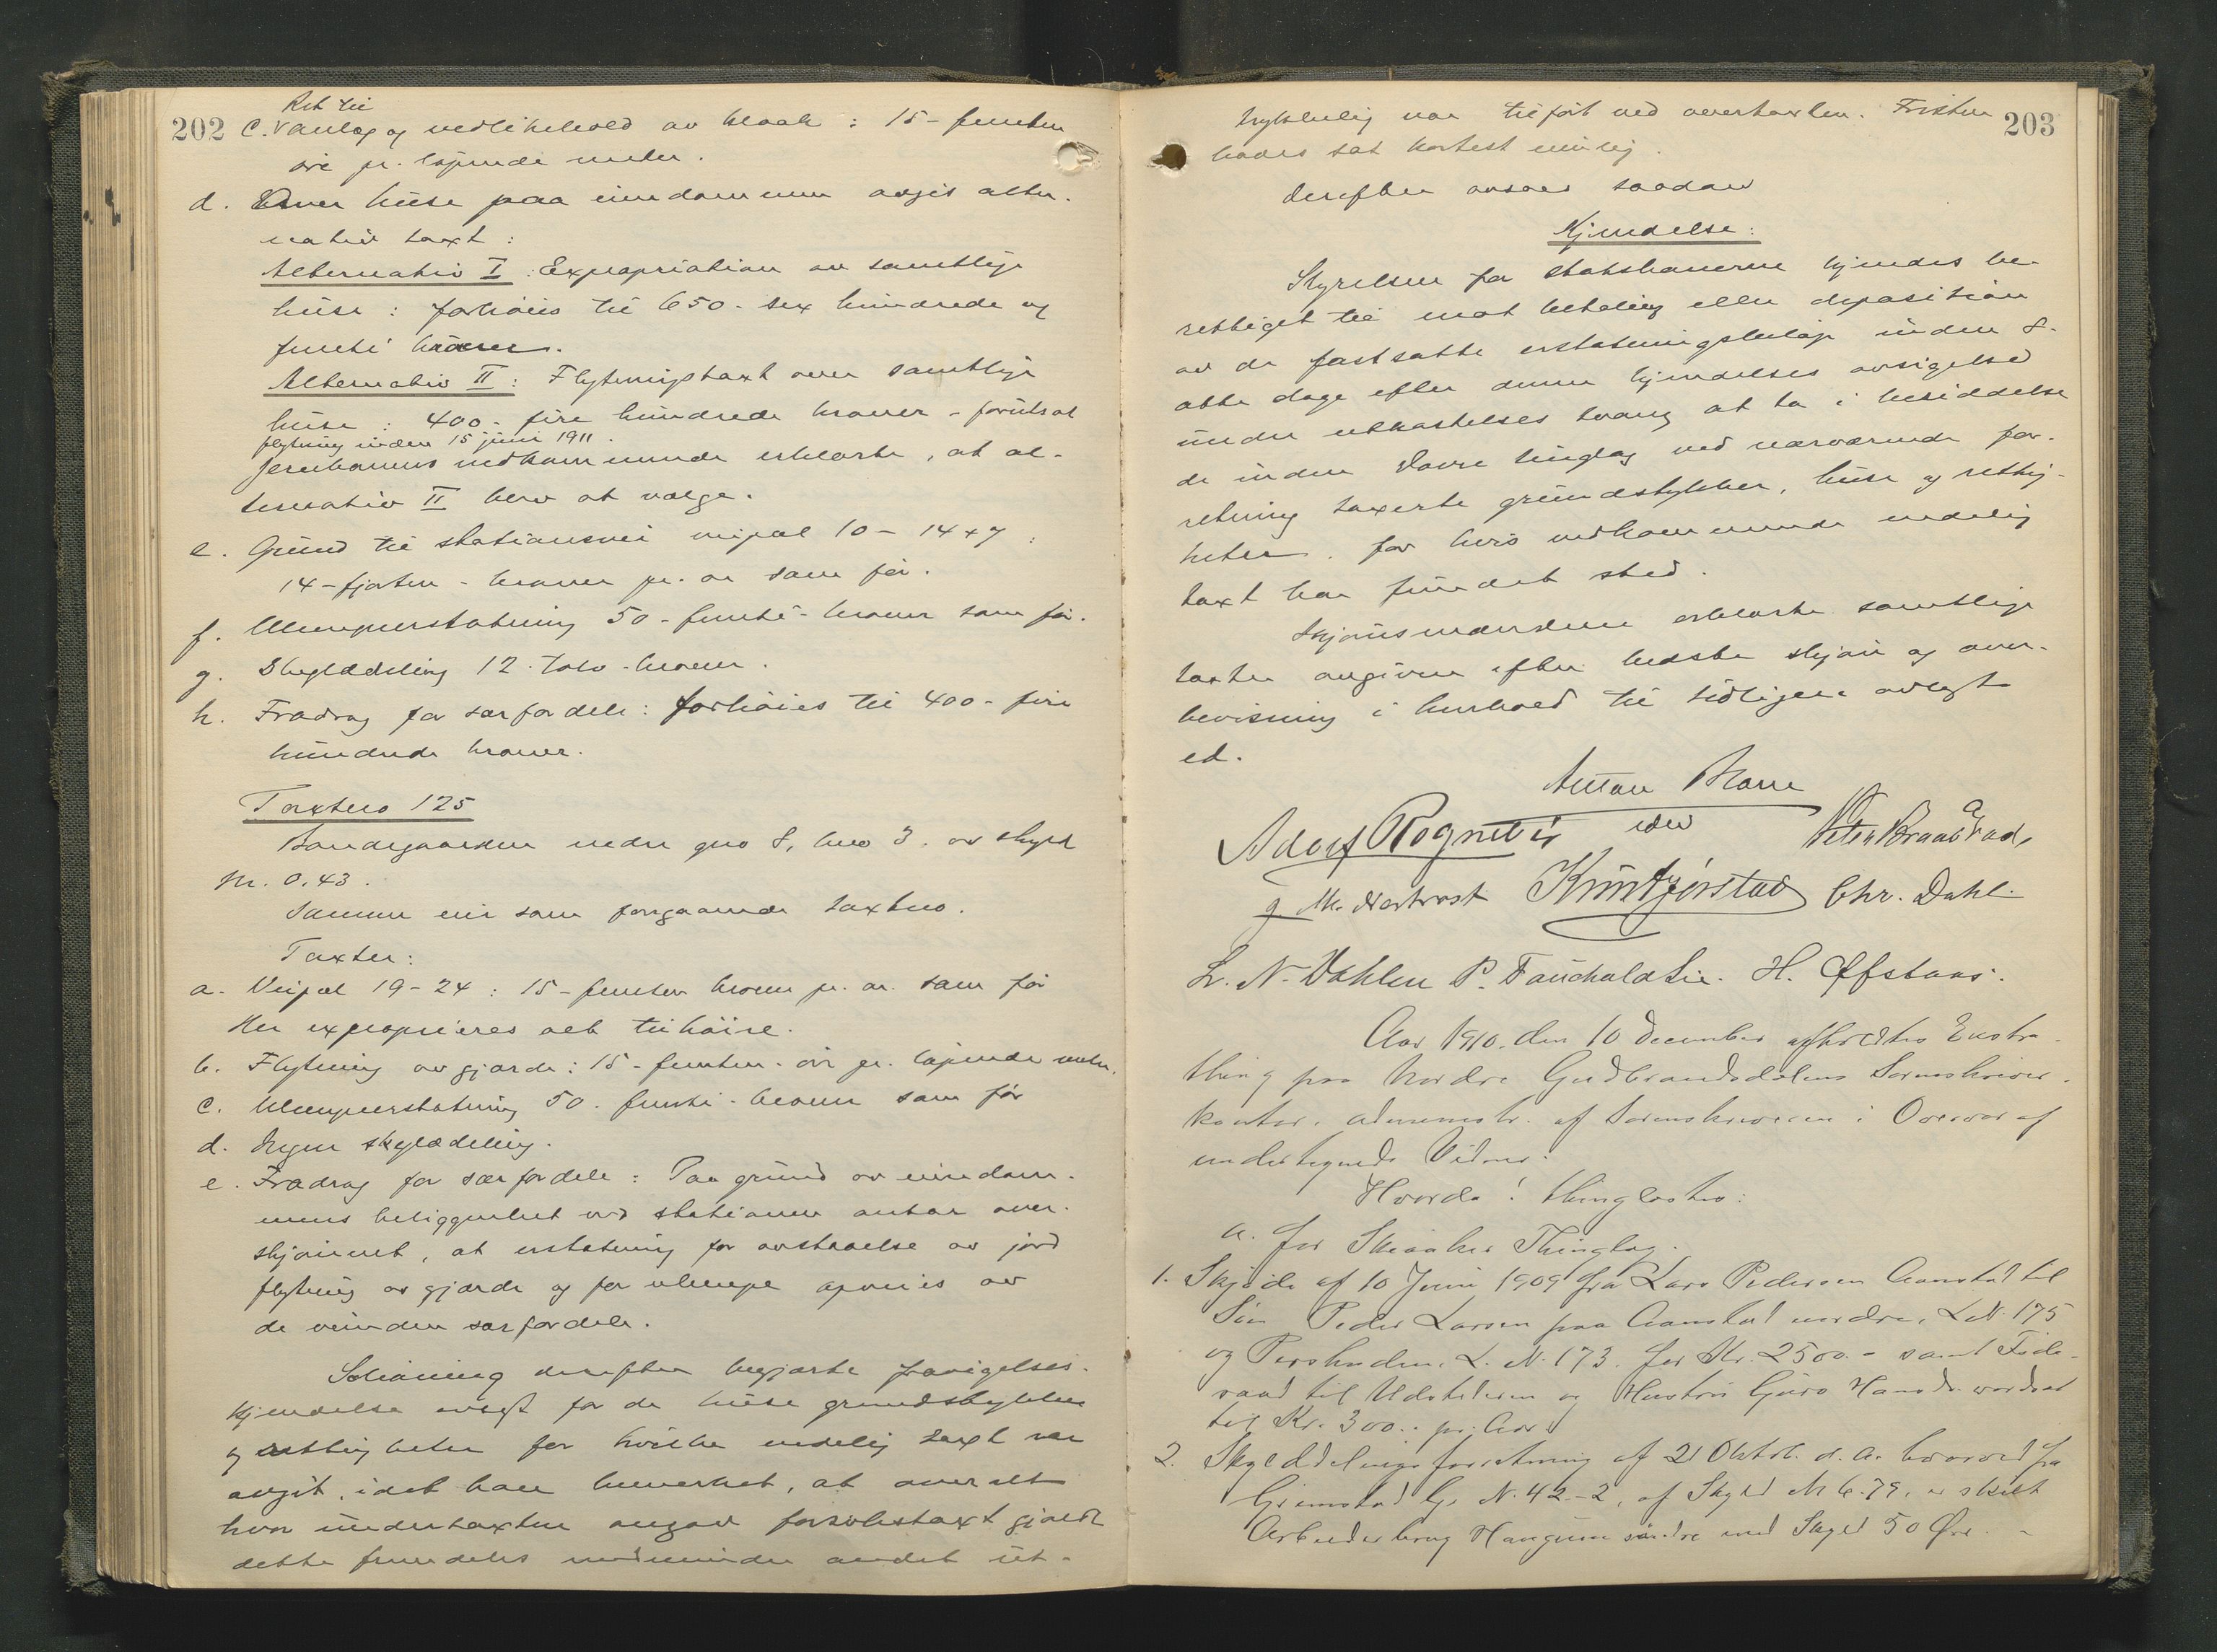 202
Ret til
c. Vanløp og vedlikehold av kloak : 15 - femten
øre pr. løpende meter.
d. Over huse paa eiendommen avgis alter-
nativ taxt :
Alternativ I : Expropriation av samtlige
huse : forhøies til 650 - sex hundrede og
femti kroner.
Alternativ II : Flytningstaxt over samtlige
huse : 400 - fire hundrede kroner - forutsat
flytning inden 15 juni 1911.
Jernbanens vedkommende erklærte, at al-
ternativ II blev at vælge.
e. Grund til stationsvei veipæl 10 - 14 + 7 :
14 - fjorten - kroner pr. ar som før.
f. Ulempeerstatning 50 - femti - kroner som før.
g. Skylddeling 12 - tolv - kroner.
h. Fradrag for særfordele : forhøies til 400 - fire
hundrede kroner.
Taxtno 125
nedre gno 8, bno 3. av skyld
m. 0.43.
Samme eier som forgaaende taxtno.
Taxter :
a. Veipæl 19 - 24 : 15 - femten kroner pr. ar. som før
Her exproprieres alt tilhøire.
b. Flytning av gjærde : 15 - femten - øre pr. løpende meter.
c. Ulempeerstatning 50 - femti - kroner som før
d. Ingen skylddeling.
e. Fradrag for særfordele : Paa grund av eiendom-
mens beliggenhet ved stationen antar over-
skjønnet, at erstatning for avstaaelse av jord
flytning av gjærde og for ulempe opveies av
de vundne særfordele.
derefter begjærte fravigelses-
kjendelse avsagt for de huse grundstykker
og rettigheter for hvilke endelig taxt var
avgit, idet han bemerket, at overalt
hvor undertaxten angav forsøkstaxt gjaldt
dette fremdeles medmindre andet ut-
203
trykkelig var tilført ved overtaxten. Fristen
bødes sat kortest mulig.
Derefter avsaes saadan
Kjendelse :
Styrelsen for statsbanerne kjendes be-
rettiget til mot betaling eller deposition
av de fastsatte erstatningsbeløp inden 8-
otte dage efter denne kjendelses avsigelse
under utkastelses tvang at ta i besiddelse
de inden Dovre tinglag ved nærværende for-
retning taxerte grundstykker, huse og rettig-
heter, for hvis vedkommende endelig
taxt har fundet sted.
Skjønsmændene erklærte samtlige
taxter avgivne efter bedste skjøn og over-
bevisning i henhold til tidligere avlagt
ed.
Peter Braastad,
Chr. Dahl
L. N. Dahlen P. Fauchaldlie. H. Øfstaas.
Aar 1910. den 10 December afholdtes Extra-
thing paa Nordre Gudbrandsdalens Sorenskriver-
kontor. administr. af Sorenskriveren i Overvær af
undertegnede Vidner.
Hvorda! thinglæstes :
a. for Skiaker Thinglag.
1. Skjøde af 10 Juni 1909 fra Lars Pedersen Aamstad til
Søn Peder Larsen paa Aamstad nordre, L.N. 175
og L. N. 173. for Kr. 2500.- samt Føde-
raad til Udstederen og Hustru Guro Hansdr. vurderet
til Kr. 300.. pr. Aar
2. Skylddelingsforretning af 21 Oktbr. d.a. hvorved fra
Grimstad G. N. 42 - 2, af Skyld M 6.79. er skilt
Arbeiderbrug Haugum søndre med Skyld 50 Øre. -